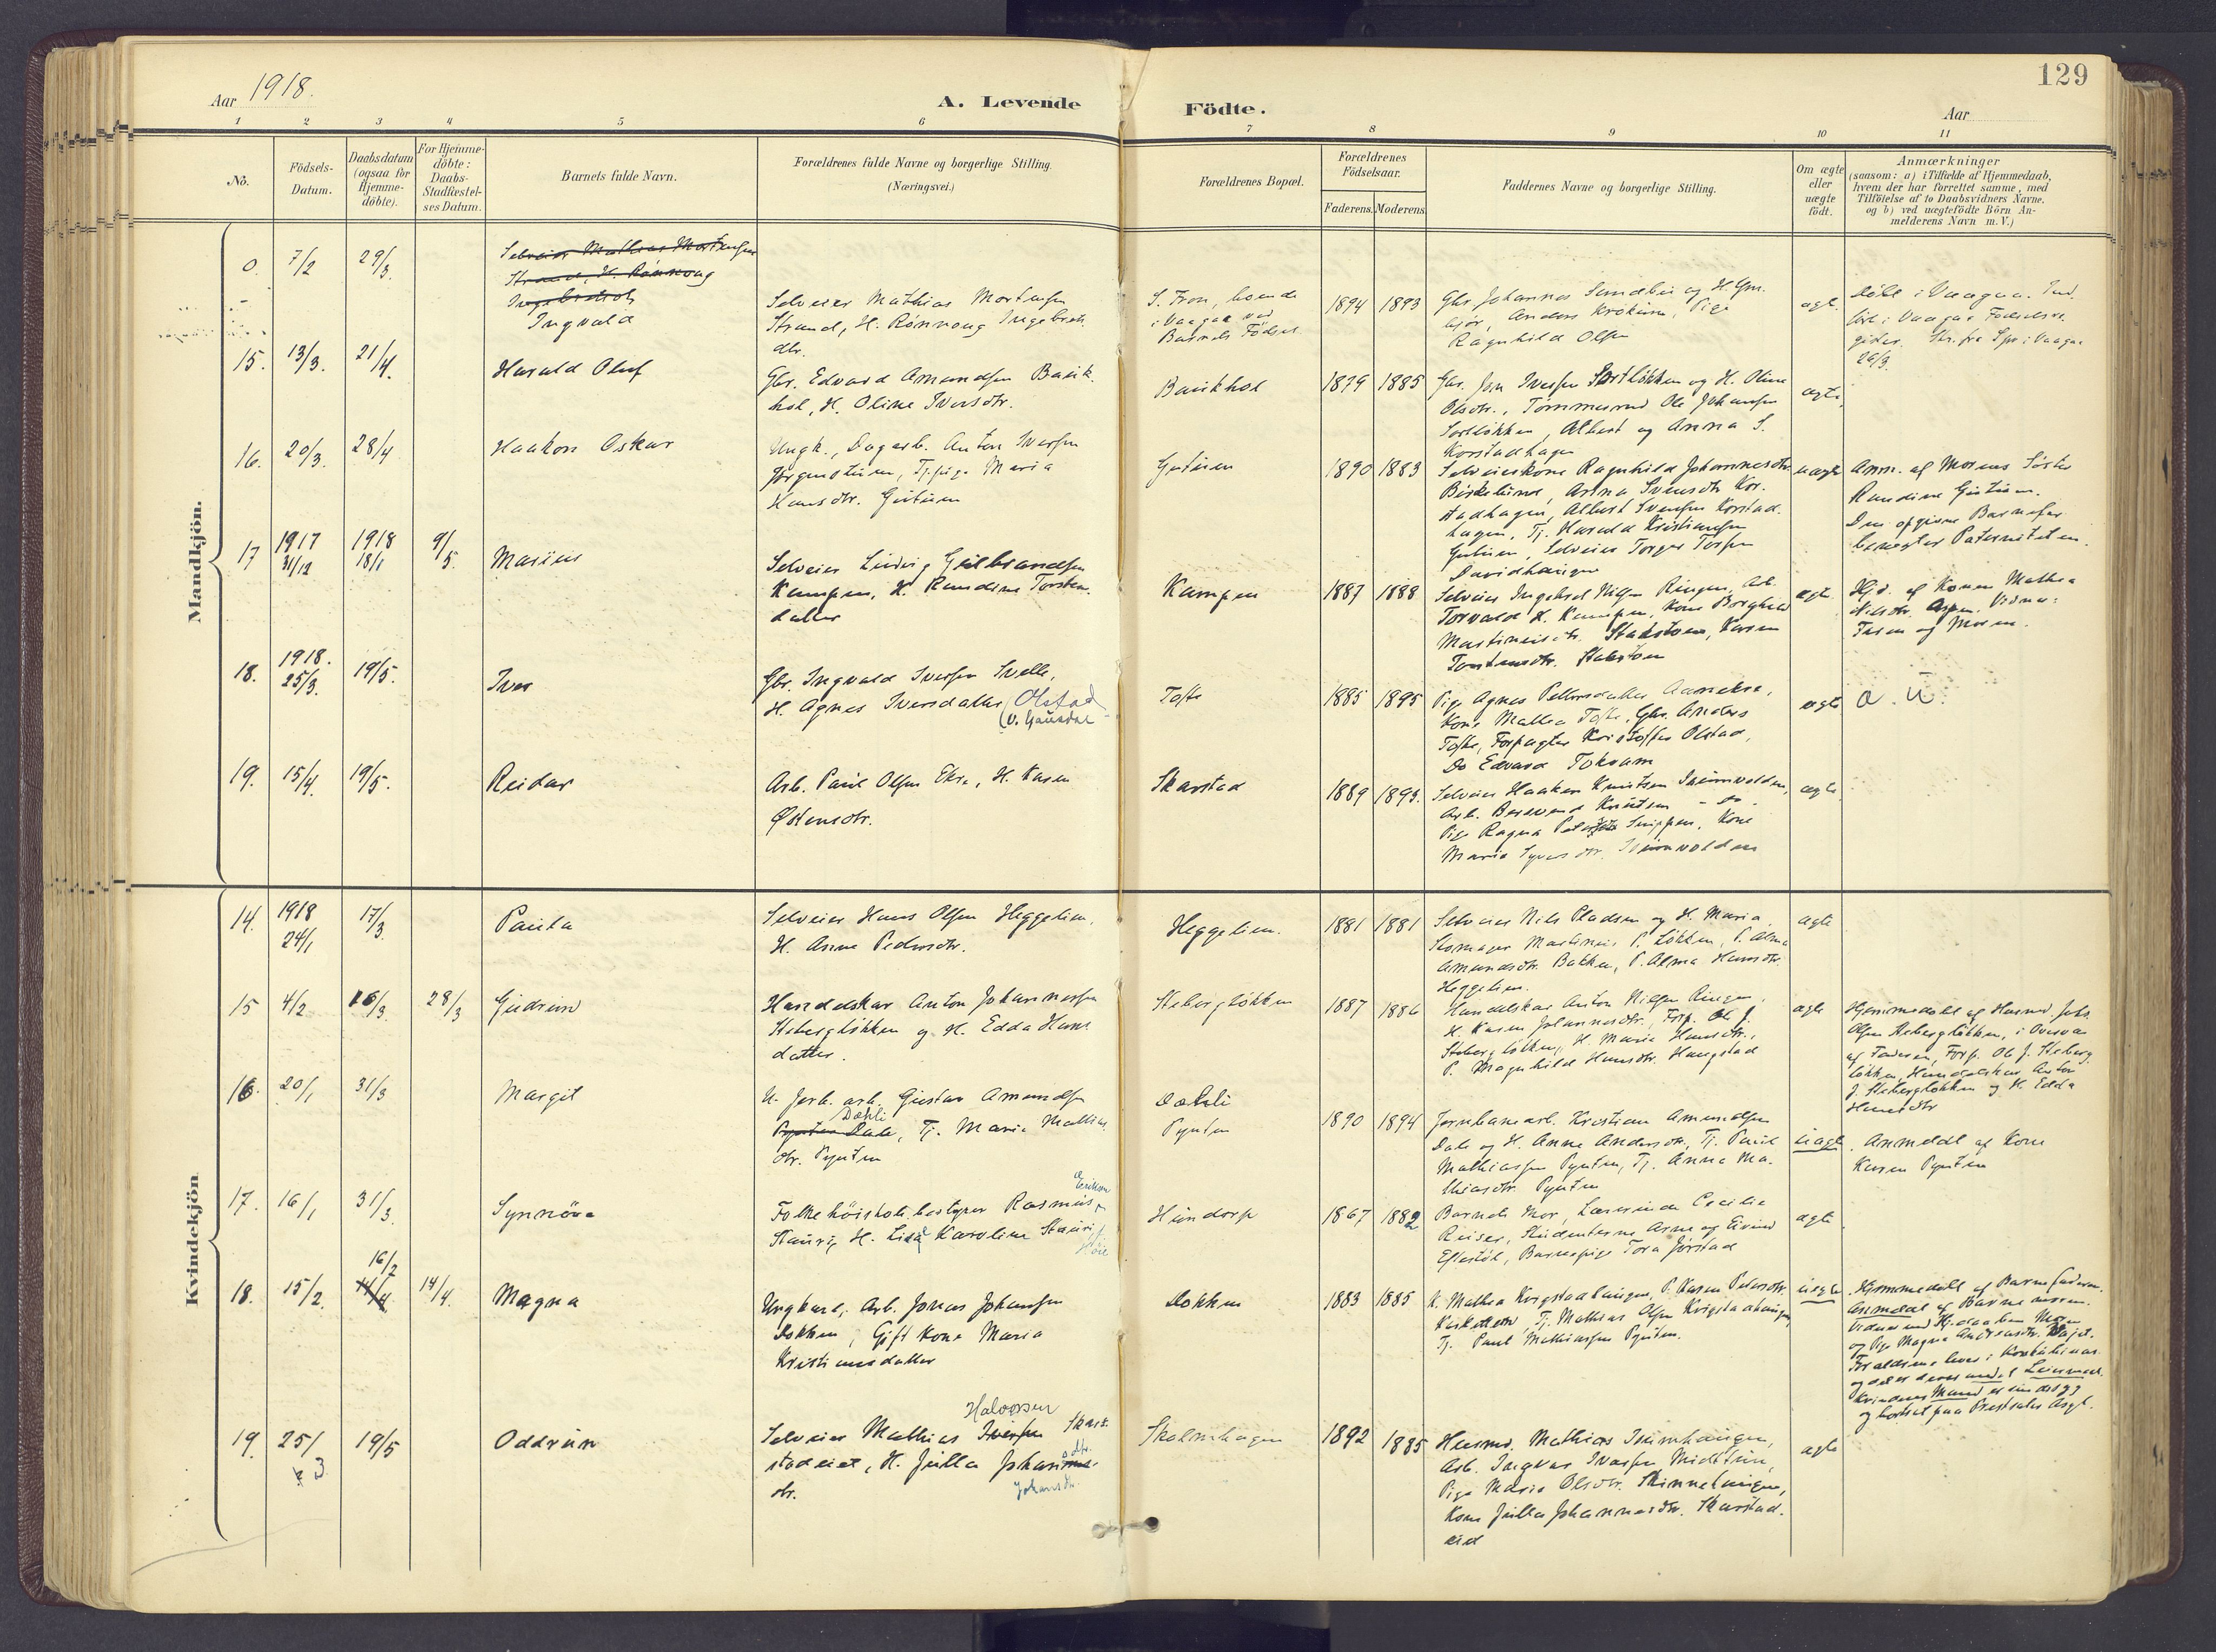 129
Aar 1918.
A. Levende Födte.
Aar
1 2 3 4 5 6 7 8 9 10 11
No.
Födsels-
Datum.
Daabsdatum
(ogsaa for
Hjemme-
döbte).
For Hjemme-
döbte:
Daabs-
Stadfæstel-
ses Datum.
Barnets fulde Navn.
Forældrenes fulde Navne og borgerlige Stilling.
(Næringsvei.)
Forældrenes Bopæl.
Forældrenes
Födselsaar.
Faderens. Moderens.
Faddernes Navne og borgerlige Stilling.
Om ægte
eller
uægte
födt.
Anmærkninger
(saasom: a) i Tilfælde af Hjemmedaab,
hvem der har forrettet samme, med
Tilföielse af to Daabsvidners Navne.
og b) ved uægtefödte Börn An-
melderens Navn m. V.)
Mandkjön.
0. 7/2 29/3.
Selveier Mathias Mortensen
Strand, H. Rönnaug
Ingebretsdtr
Ingvald
Selveier Mathias Mortensen
Strand, H. Rönnaug Ingebrets
dtr.
S. Fron, boende
i Vaagaa ved
Barnets Födsel
1894 1893
Gbr. Johannes Sundbu og H.
Anders Pige
Ragnhild Olsen
ægte
Döbt i Vaagaa. Ind
fört i Vaagaa Födselsre
gister. Skr. fra Spr. i Vaagaa
26/3.
15. 13/3. 21/4.
Harald Oluf
Gbr. Edvard Amundsen Bauk
hol, H. Oline Iversdtr.
Baukhol
1879 1885
Gbr. Jon Iversen Sortløkken og H. Oline
Olsdtr., Tømmermd Ole Johansen
Sortløkken, Albert og Anna S.
Korstadhagen
ægte
16. 20/3. 28/4
Haakon Oskar
Ungk., Dagarb. Anton Iversen
Jørgenstuen, Tj. pige Maria
Hansdtr. Gutuen
Gutuen
1890 1883
Selveierkone Ragnhild Johannesdtr
Birkelund, Anna Svensdtr Kor-
stadhagen, Albert Svensen Korstad-
hagen, Tj. Harald Kristiansen
Gutuen, Selveier Torger Torsen
Davidhaugen
uægte
Anm. af Morens Söster
Randine Gutuen.
Den opgivne Barnefar
benegter Paterniteten.
17 1917 31/12 1918 18/1 9/5.
Marius
Selveier Ludvig Gulbrandsen
Kampen, H. Randine Torsten
datter
Kampen
1887 1888
Selveier Ingebret Nilsen Ringen, Arb.
Torvald H. Kampen, Kone Borghild
Martiniusdtr. Stakstoen, Karen
Torstensdtr. Stakstoen
ægte
Hjd. af Konen Mathea
Nilsdtr. Aspen. Vidner:
Faren og Moren.
18. 1918. 25/3. 19/5.
Iver
Gbr. Ingvald Iversen Svelle,
H. Agnes Iversdatter (Olstad
(V. Gausdal
Tofte
1885 1895
Pige Agnes Pettersdatter Aanekre,
Kone Mathea Tofte, Gbr. Anders
Tofte, Forpagter Kristoffer Olstad,
Do Edvard Tokvam
ægte
a. u.
19. 15/4. 19/5.
Reidar
Arb. Paul Olsen Ekre, H. Karen
Østensdtr.
Skarstad
1889 1893.
Selveier Haakon Knutsen
Arb. Berevend Knutsen - do -
Pige Ragna Petersdtr Snippen, Kone
Maria Syversdtr.
ægte
Kvindekjön
14. 1918 24/1 17/3.
Paula
Selveier Hans Olsen Heggelien,
H. Anne Pedersdtr.
Heggelien.
1881 1881
Selveier Nils Pladsen og H. Maria
Skomager Martinus P. Løkken, P. Alma
Amundsdtr. Bakken, P. Alma Hansdtr.
Heggelien.
ægte
15 4/2 16/3 28/3
Gudrun
Handelskar Anton Johannessen
Stebergløkken og H. Edda Hans
datter.
Stebergløkken
1887 1886
Handelskar Anton Nilsen Ringen,
H. Karen Johannesdtr., Forp. Ole J.
Stebergløkken, H. Marie Hansdtr.,
P. Magnhild Hansdtr. Haugstad
ægte
Hjemmedøbt af Husmd. Johs.
Olsen Stebergløkken, i Overvær
af Faderen, Forp. Ole J. Steberg
løkken, Handelskar Anton
J. Stebergløkken og H. Edda
Hansdtr
16. 20/1 31/3
Margit
U. Jerb. arb. Gustav Amundsen
Dæhli
Pynten Dale, Tj. Marie Mathias
dtr. Pynten
Dæhli
Pynten
1890 1894
Jernbanearb. Kristian Amundsen
Dale og H. Anne Andersdtr., Tj. Paul
Mathiassen Pynten, Tj. Anna Ma-
thiasdtr. Pynten
uægte
Anmeldt af Kone
Karen Pynten
17. 16/1 31/3.
Synnöva
Eriksen
Folkehöiskolebestyrer Rasmus
Stauri, H. Lisa Karoline Stauri f.
Høie
Hundorp
1867 1882
Barnets Mor, Lærerinde Cecilie
Reiser, Studenterne Arne og Eivind
Eftestøl, Barnepige Tora Jørstad
ægte
18. 15/2. 16/2 14/4 14/4.
Magna
Ungkarl, Arb. Jonas Johansen
Dokken, Gift Kone Maria
Kristiansdatter
Dokken
1883 1885
K. Mathea Kvigstadhaugen, P. Karen Pedersdtr.
Tj. Mathias Olsen Kvigstadhaugen,
Tj. Paul Mathiassen Pynten.
uægte
Hjemmedøbt af Barnefaderen.
Anmeldt af Barnemoren.
Vidner ved Hj.daaben Moren
og Pige Magna
Forældrene lever i Konkubinat
Kvindens Mand er sindssyg
og bortsat paa Presteseter Asyl.
19. 25/3 19/5
Oddrun
Halvorsen
Selveier Mathias Iversen Skar-
stadeiet, H. Julla Johannes
dtr.
Johansdtr.
Skolmhagen
1892 1885
Husmd. Mathias
Arb. Ingvar Ivarsen Midttun,
Pige Maria Olsdtr. Skinnerhaugen,
Kone Julla Johannesdtr. Skarstad-
eid
ægte